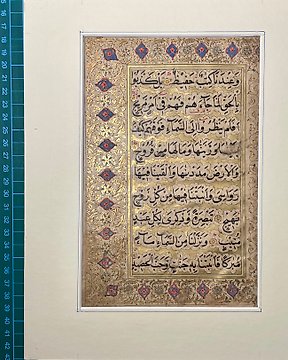 وَعِندَنَا كِتَٰبٌ حَفِيظٌ بَلْ كَذَّبُوا
بِالْحَقِّ لَمَّا جَاءَهُمْ فَهُمْ فِي أَمْرٍ مَرِيجٍ
أَفَلَمْ يَنظُرُوا إِلَى السَّمَاءِ فَوْقَهُمْ كَيْفَ
بَنَيْنَٰهَا وَزَيَّنَّٰهَا وَمَا لَهَا مِن فُرُوجٍ
وَالْأَرْضَ مَدَدْنَٰهَا وَأَلْقَيْنَا فِيهَا
رَوَاسِيَ وَأَنبَتْنَا فِيهَا مِن كُلِّ زَوْجٍ
بَهِيجٍ تَبْصِرَةً وَذِكْرَىٰ لِكُلِّ عَبْدٍ
مُنِيبٍ وَنَزَّلْنَا مِنَ السَّمَاءِ مَاءً
مُبَٰرَكًا فَأَنبَتْنَا بِهِ جَنَّٰتٍ وَحَبَّ الْحَصِيدِ